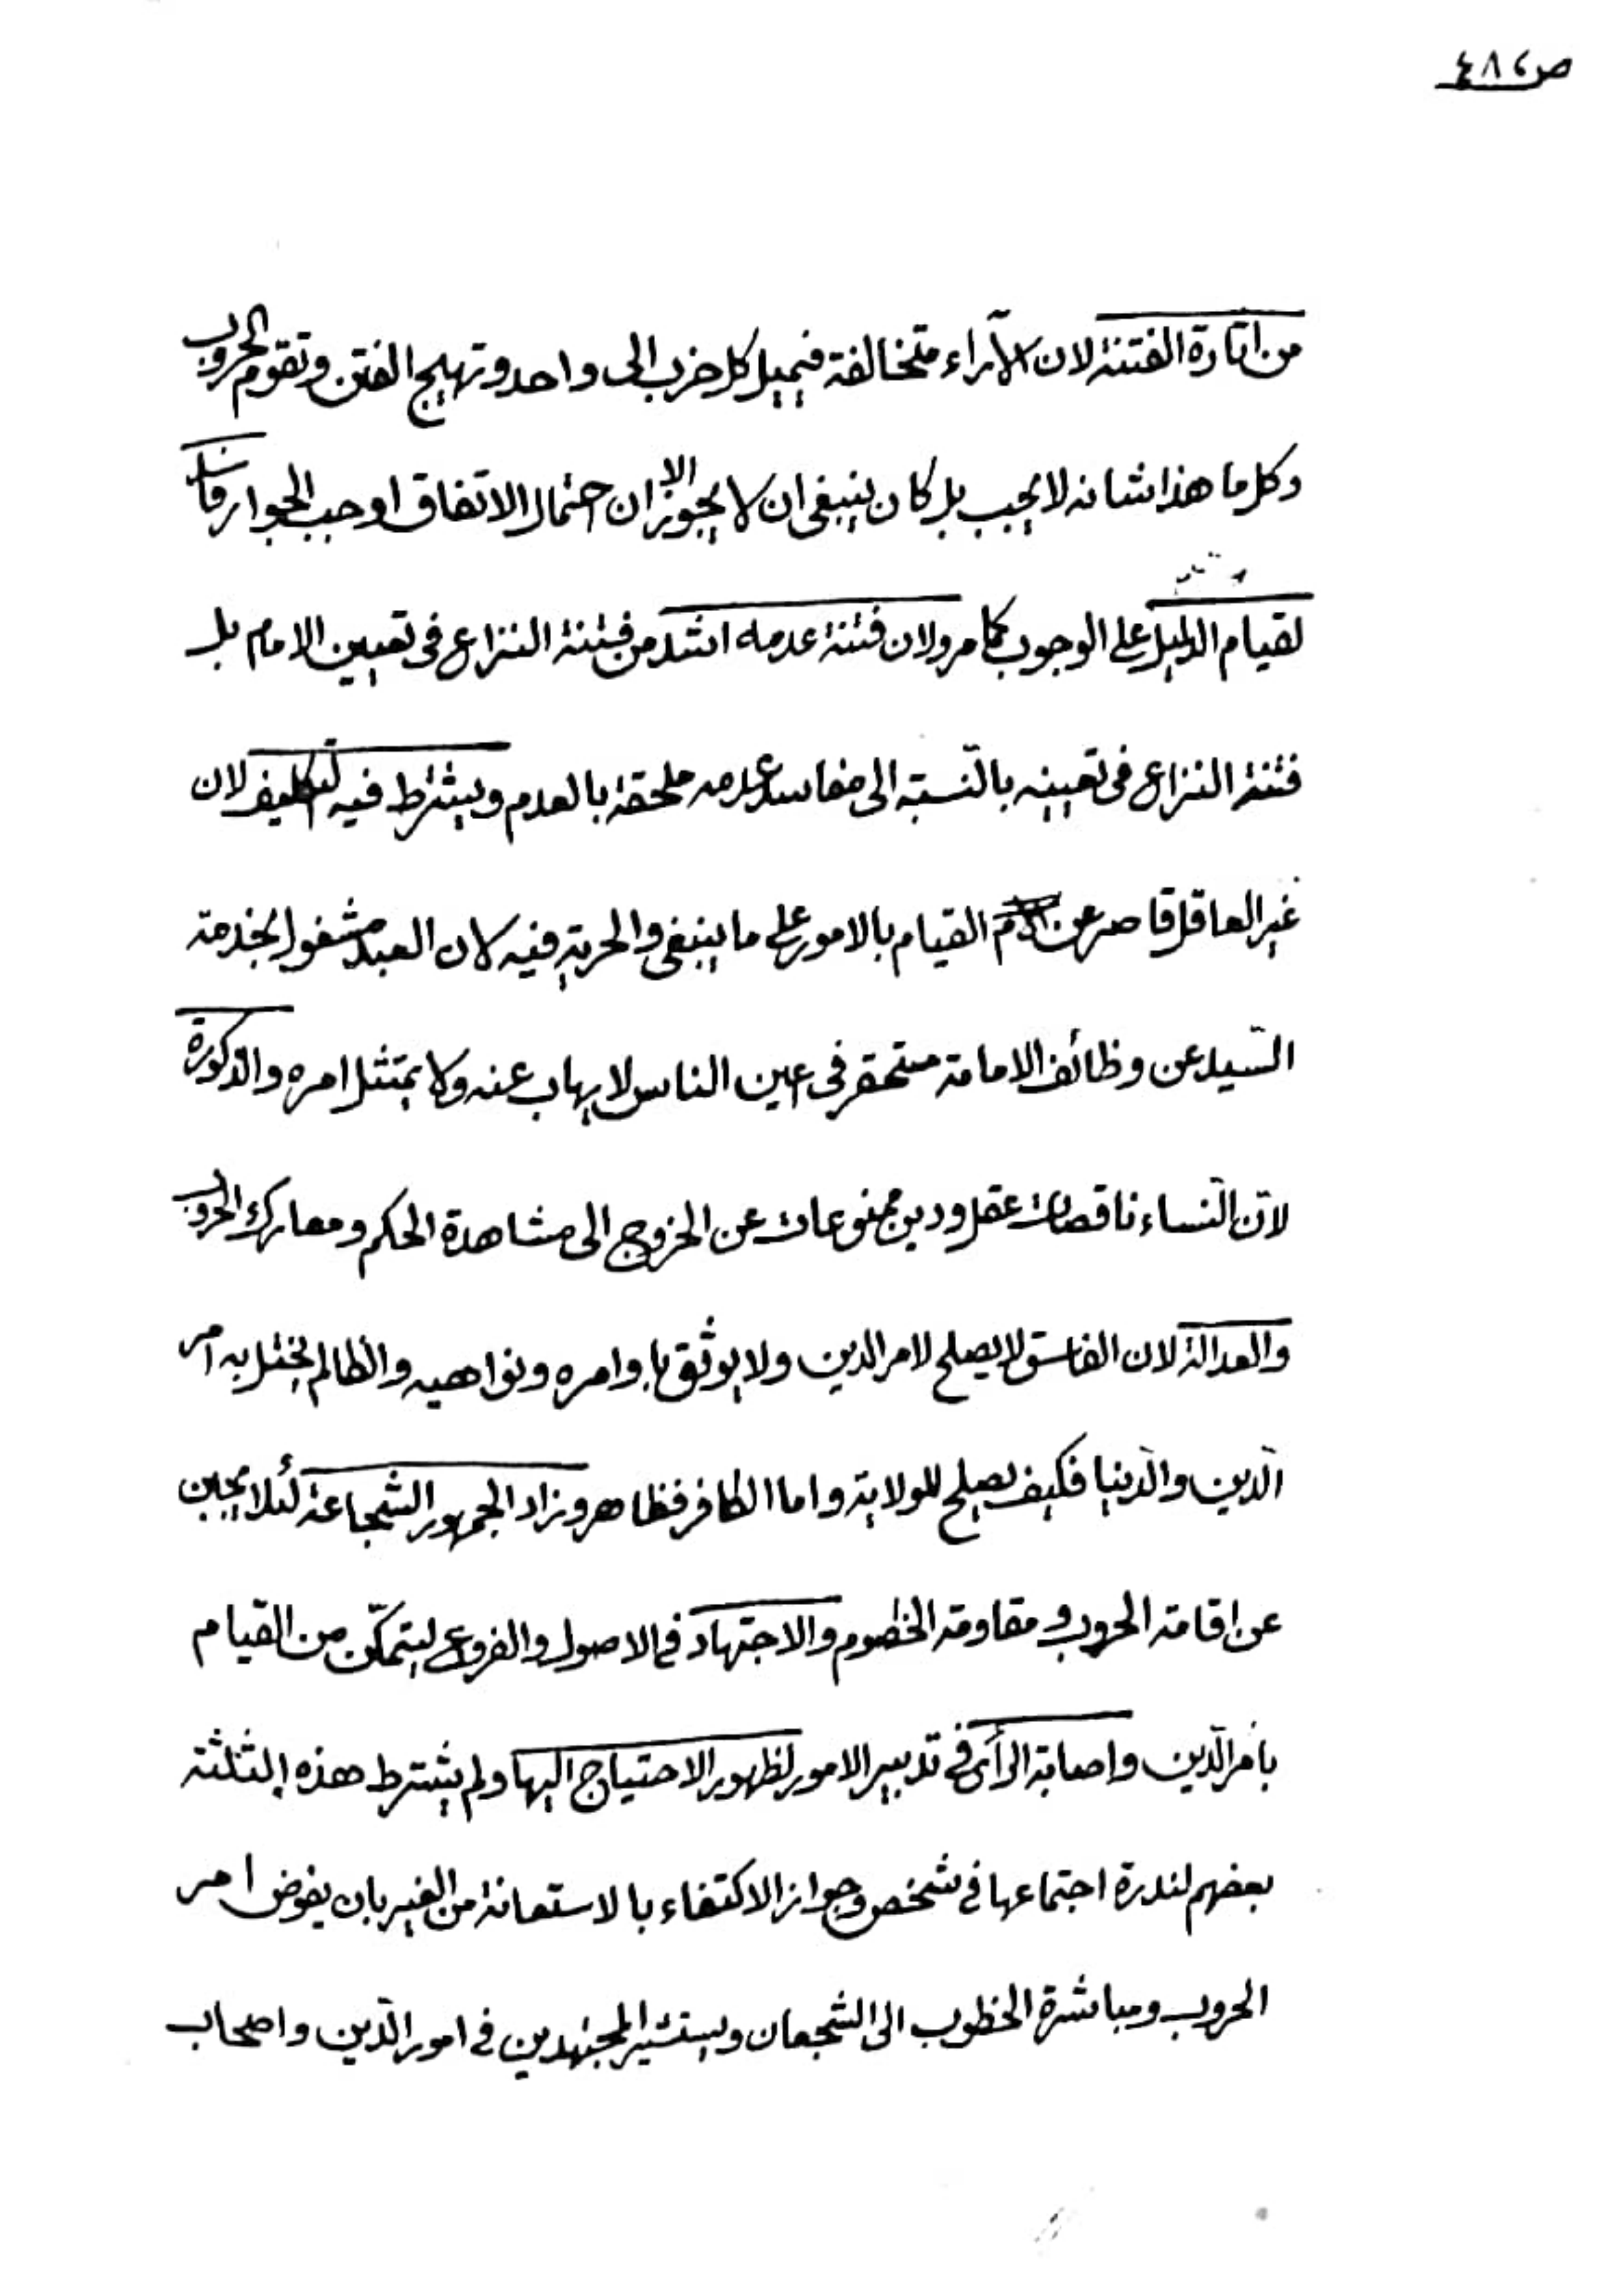 ص، ٤٨
من اثارة الفتنة لان الآراء متخالفة فيميل كل حزب الى واحد وتهيج الفتن وتقوم الحروب
وكل ما هذا شانه لا يجب بل كان ينبغى ان لا يجوز الا ان احتمال الاتفاق اوجب الجواز
لقيام الدليل على الوجوب كما مر ولان فتنة عدمه اشد من فتنة النزاع فى تعيين الامام بل
فتنة النزاع فى تعيينه بالنّسبة الى مفاسد عدمه ملحقة بالعدم ويشترط فيه التكليف لان
غير العاقل قاصر عن القيام بالامور على ما ينبغى والحرية فيه لان العبد مشغول بخدمة
السّيد عن وظائف الامامة مستحقر فى اعين الناس لا يهاب عنه ولا يمتثل امره والذكورة
لانّ النّساء ناقصات عقل ودين ممنوعات عن الخروج الى مشاهدة الحكم ومعارك الحروب
والعدالة لان الفاسق لا يصلح لامر الدين ولا يوثق باوامره ونواهيه والظالم يختل به امر
الدّين والدّنيا فكيف يصلح للولاية واما الكافر فظاهر وزاد الجمهور الشجاعة لئلا يجبن
عن اقامة الحروب ومقاومة الخصوم والاجتهاد فى الاصول والفروع ليتمكّن من القيام
بامر الدّين واصابة الرأى فى تدبير الامور لظهور الاحتياج اليها ولم يشترط هذه الثلثة
بعضهم لندرة اجتماعها فى شخص وجواز الاكتفاء بالاستعانة من الغير بان يفوض امر
الحروب ومباشرة الخطوب الى الشّجعان ويستشير المجتهدين فى امور الدّين واصحاب